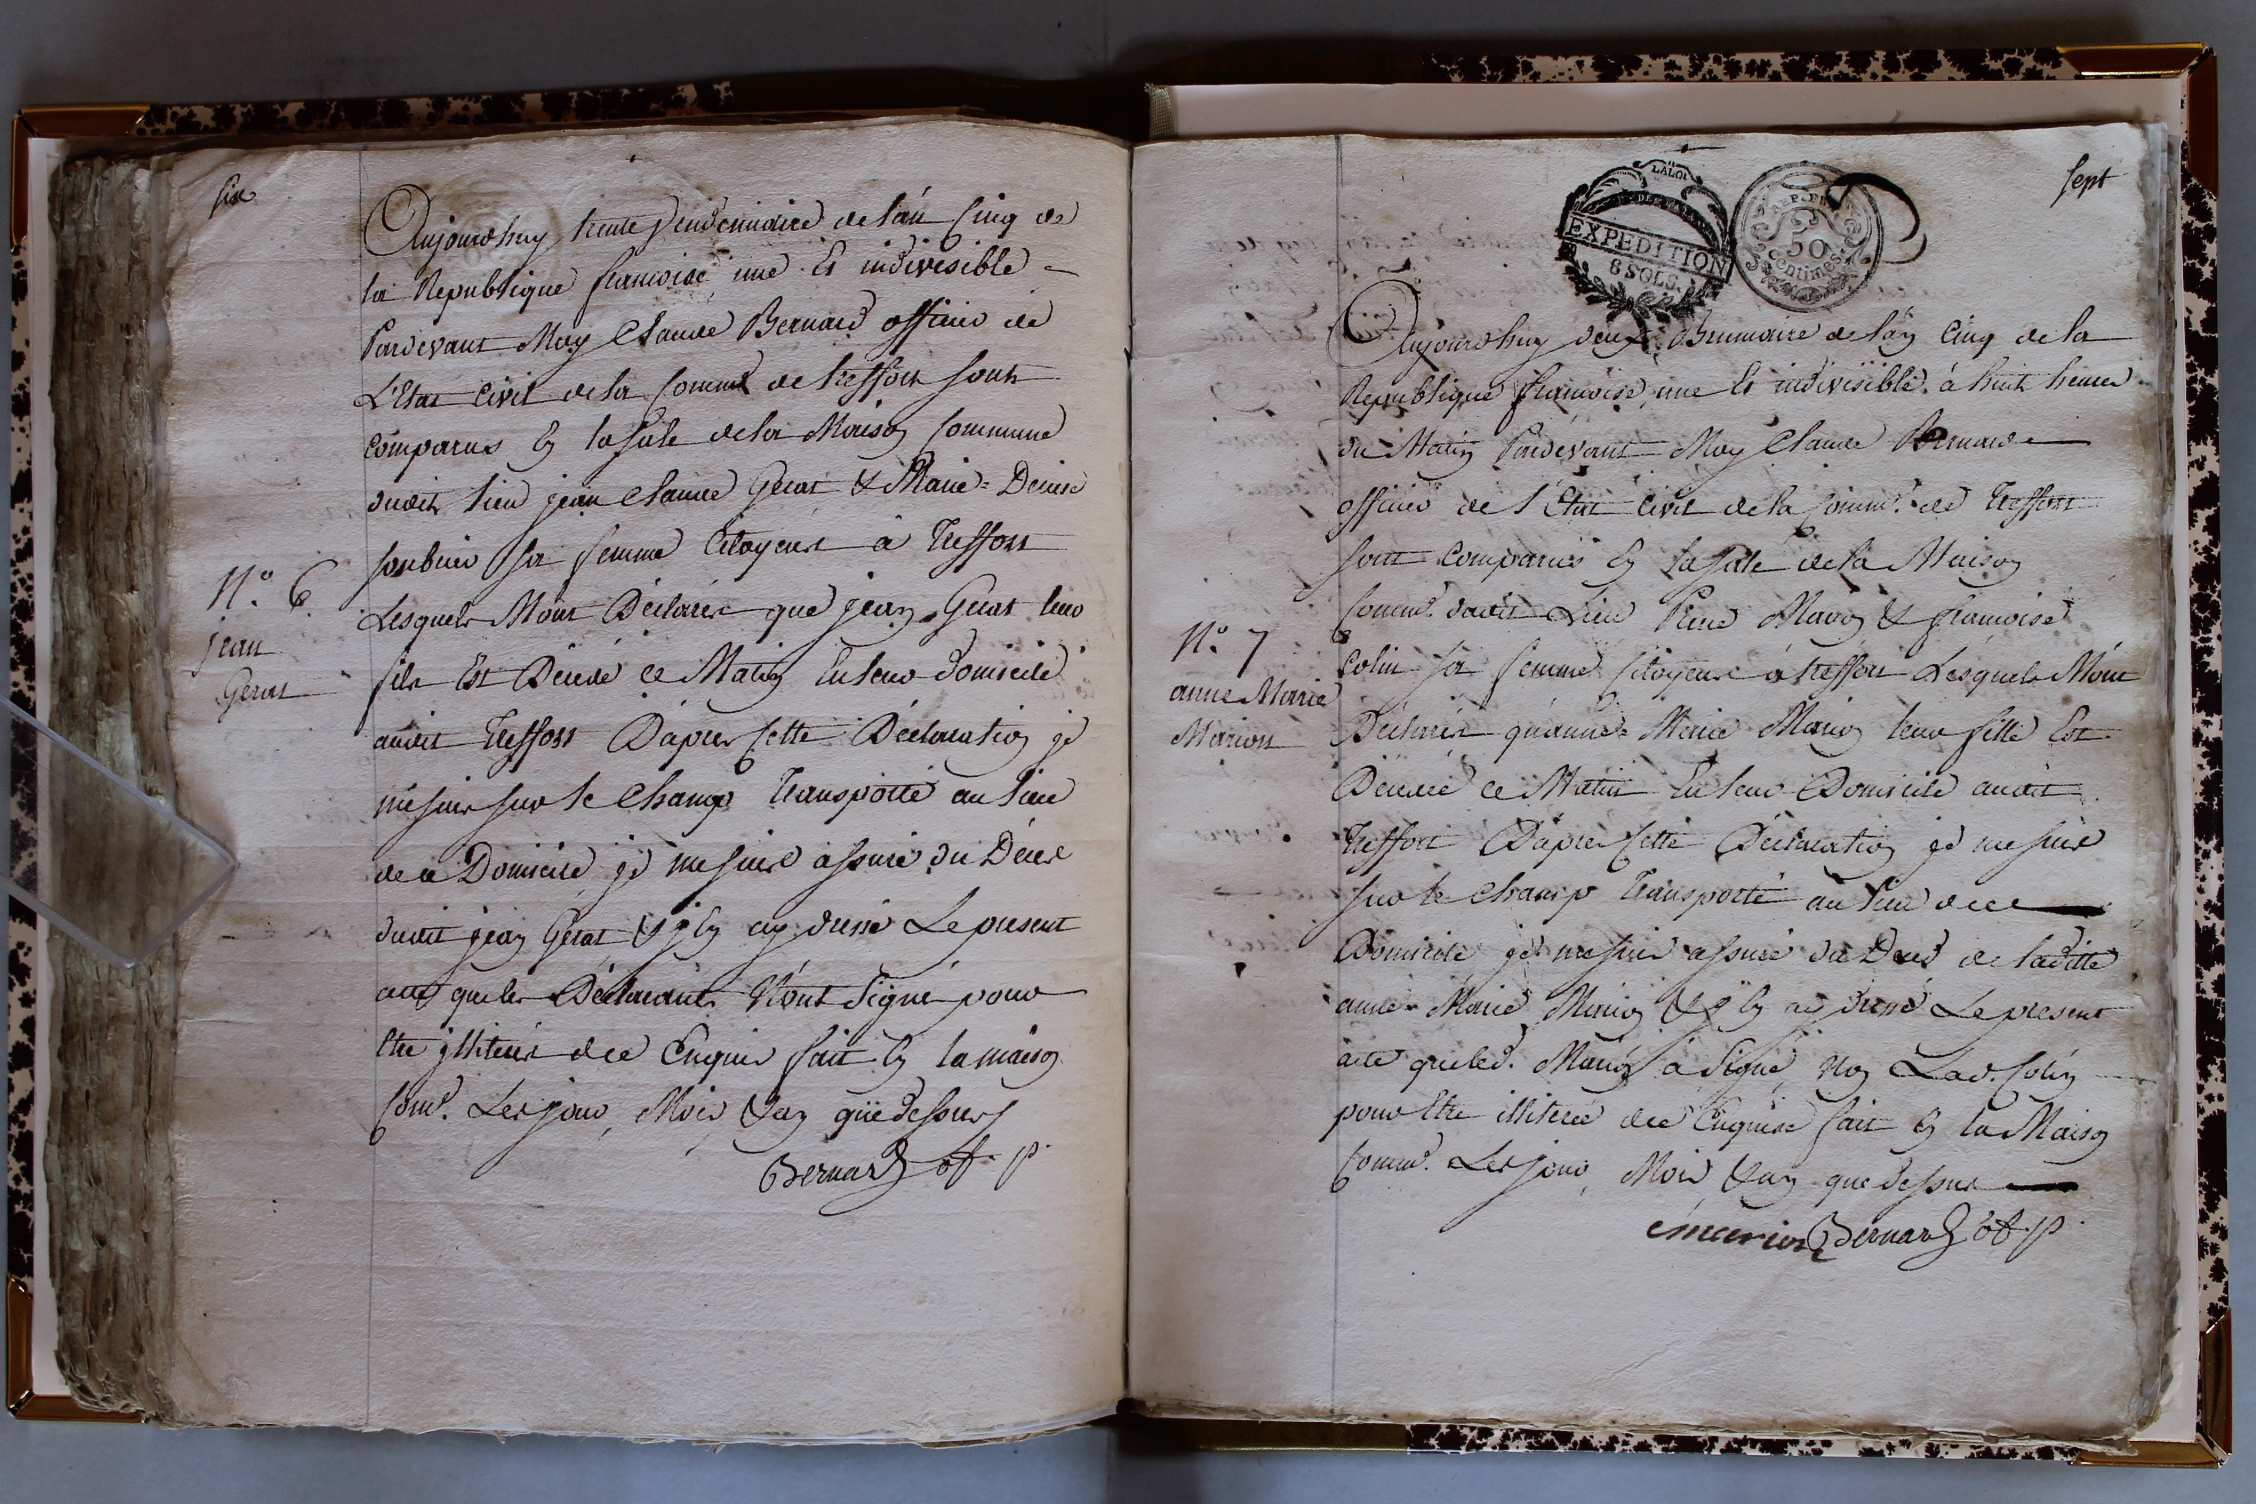 Six
Aujourdhuy trente Vendemiaire de l'an Cinq de
la Republique francoise une Et indivisible
Pardevant Moy Claude Bernard officier de
L'Etat Civil de la Comme de treffort Sont
Comparus En la Sale de la Maison Commune
dudit lieu jean Claude Gerat & Marie-Denise
sa femme Citoyens à Treffort
Lesquels M'ont Déclarés que jean Gerat leur
fils Est Décédé ce Matin En leur domicile
audit Treffort D'après Cette Déclaration je
me suis sur le Champ Transporté au lieu
de ce Domicile je me suis assuré du Décès
dudit jean Gerat & j'En ay dressé Le present
acte que les Déclarants N'ont Signé pour
Etre illiterés de ce Enquis fait En la maison
Comme. Les jour, Mois, & an que dessus
Bernard of. p.
N.º 6
jean
Gerat
LALOI
EXPEDITION
8 SOLS.
REP. FRA.
50
Centimes
Sept
Aujourdhuy deux Brumaire de l'an Cinq de la
Republique francoise, une Et indivisible à huit heures
du Matin Pardevant Moy Claude Bernard
officier de l'Etat Civil de la Comme. de Treffort
Sont Comparus En la Sale de la Maison
Comme. dudit Lieu Marion & francoise
Colin sa femme Citoyens à treffort Lesquels M'ont
Déclarés qu'anne-Marie Marion leur fille Est
Décédée ce Matin En leur Domicile audit
Treffort D'après Cette Déclaration je me suis
sur le Champ Transporté au lieu de ce
Domicile je me suis assuré du Décès de laditte
anne-Marie Marion & j'En ay dressé Le present
acte que led. Marion à Signé, Non Lad. Colin
pour Etre illiterée de ce Enquise fait En la Maison
Comme. Les jour, Mois & an que dessus
Marion Bernard of. p.
N.º 7
anne Marie
Marion